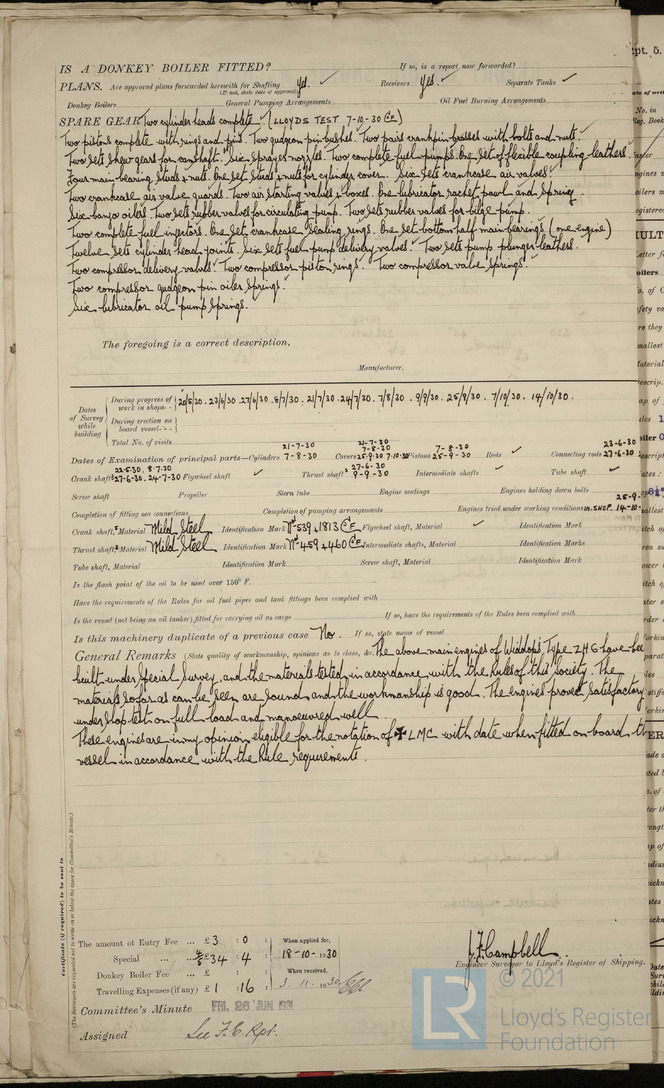 IS A DONKEY BOILER FITTED? If so, is a report now forwarded?
PLANS. Are approved plans forwarded herewith for Shafting yes. ✓ Receivers yes. ✓ Separate Tanks ✓
(If not, state date of approval)
Donkey Boilers General Pumping Arrangements Oil Fuel Burning Arrangements
SPARE GEAR Two cylinder heads complete (LLOYDS TEST 7-10-30
Two pistons complete with rings and pins. Two gudgeon pin bushes. Two pairs crankpin brasses with bolts and nuts.
Two sets skew gears for camshaft. Six sprayer nozzles. Two complete fuel pumps. One set of flexible coupling leathers.
Four main bearing studs & nuts. One set studs & nuts for cylinder cover. Six sets crankcase air valves.
Two crankcase air valve guards. Two air starting valves & boxes. One lubricator rachet pawl and spring.
Six banjo oilers. Two sets rubber valves for circulating pump. Two sets rubber valves for bilge pump.
Two complete fuel injectors. One set crankcase sealing rings. One set bottom half main bearings (one engine)
Twelve sets cylinder head joints. Six sets fuel pump delivery valves. Two sets pump plunger leathers.
Two compressor delivery valves. Two compressor piston rings. Two compressor valve springs.
Two compressor gudgeon pin oiler springs.
Six lubricator oil pump springs.
The foregoing is a correct description,
Manufacturer.
Dates of Survey while building
During progress of work in shops - - 20/5/30. 23/6/30. 27/6/30. 8/7/30. 21/7/30. 24/7/30. 7/8/30. 9/9/30. 25/9/30. 7/10/30. 14/10/30.
During erection on board vessel - - -
Total No. of visits
Dates of Examination of principal parts—Cylinders 21-7-30 7-8-30 Covers 21-7-30 7-8-30 25-9-30 7-10-30 Pistons 7-8-30 25-9-30 Rods ✓ Connecting rods 23-6-30 27-6-30
Crank shafts 22-5-30. 8-7-30 27-6-30. 24-7-30 Flywheel shaft ✓ Thrust shafts 27-6-30 9-9-30 Intermediate shafts ✓ Tube shaft ✓
Screw shaft Propeller Stern tube Engine seatings Engines holding down bolts
Completion of fitting sea connections Completion of pumping arrangements Engines tried under working conditions IN SHOP. 25-9- 14-10-
Crank shafts, Material Mild Steel Identification Mark Nos 539 & 1813 Flywheel shaft, Material ✓ Identification Mark
Thrust shafts, Material Mild Steel Identification Mark Nos 459 & 460 Intermediate shafts, Material Identification Marks
Tube shaft, Material Identification Mark Screw shaft, Material Identification Mark
Is the flash point of the oil to be used over 150° F.
Have the requirements of the Rules for oil fuel pipes and tank fittings been complied with
Is the vessel (not being an oil tanker) fitted for carrying oil as cargo If so, have the requirements of the Rules been complied with
Is this machinery duplicate of a previous case No. If so, state name of vessel
General Remarks (State quality of workmanship, opinions as to class, &c. The above main engines of Widdops, Type 2HG have been
built under Special Survey, and the materials tested in accordance with the Rules of this Society. The
materials so far as can be seen are sound and the workmanship is good. The engines proved satisfactory
under shop test on full load and manoeuvred well.
These engines are in my opinion eligible for the notation of ✠ LMC with date when fitted on board the
vessel in accordance with the Rule requirements.
Certificate (if required) to be sent to
(The Surveyors are requested not to write on or below the space for Committee's Minute.)
The amount of Entry Fee ... £ 3 : 0 : When applied for,
Special ... £ 34 : 4 : 18-10-1930
Donkey Boiler Fee ... £ : : When received,
Travelling Expenses (if any) £ 1 : 16 : 3. 11. 1930
J. F. Campbell
Engineer Surveyor to Lloyd's Register of Shipping.
Committee's Minute FRI. 26 JUN 1931
Assigned See F.E. Rpt.
© 2021
LR
Lloyd's Register
Foundation